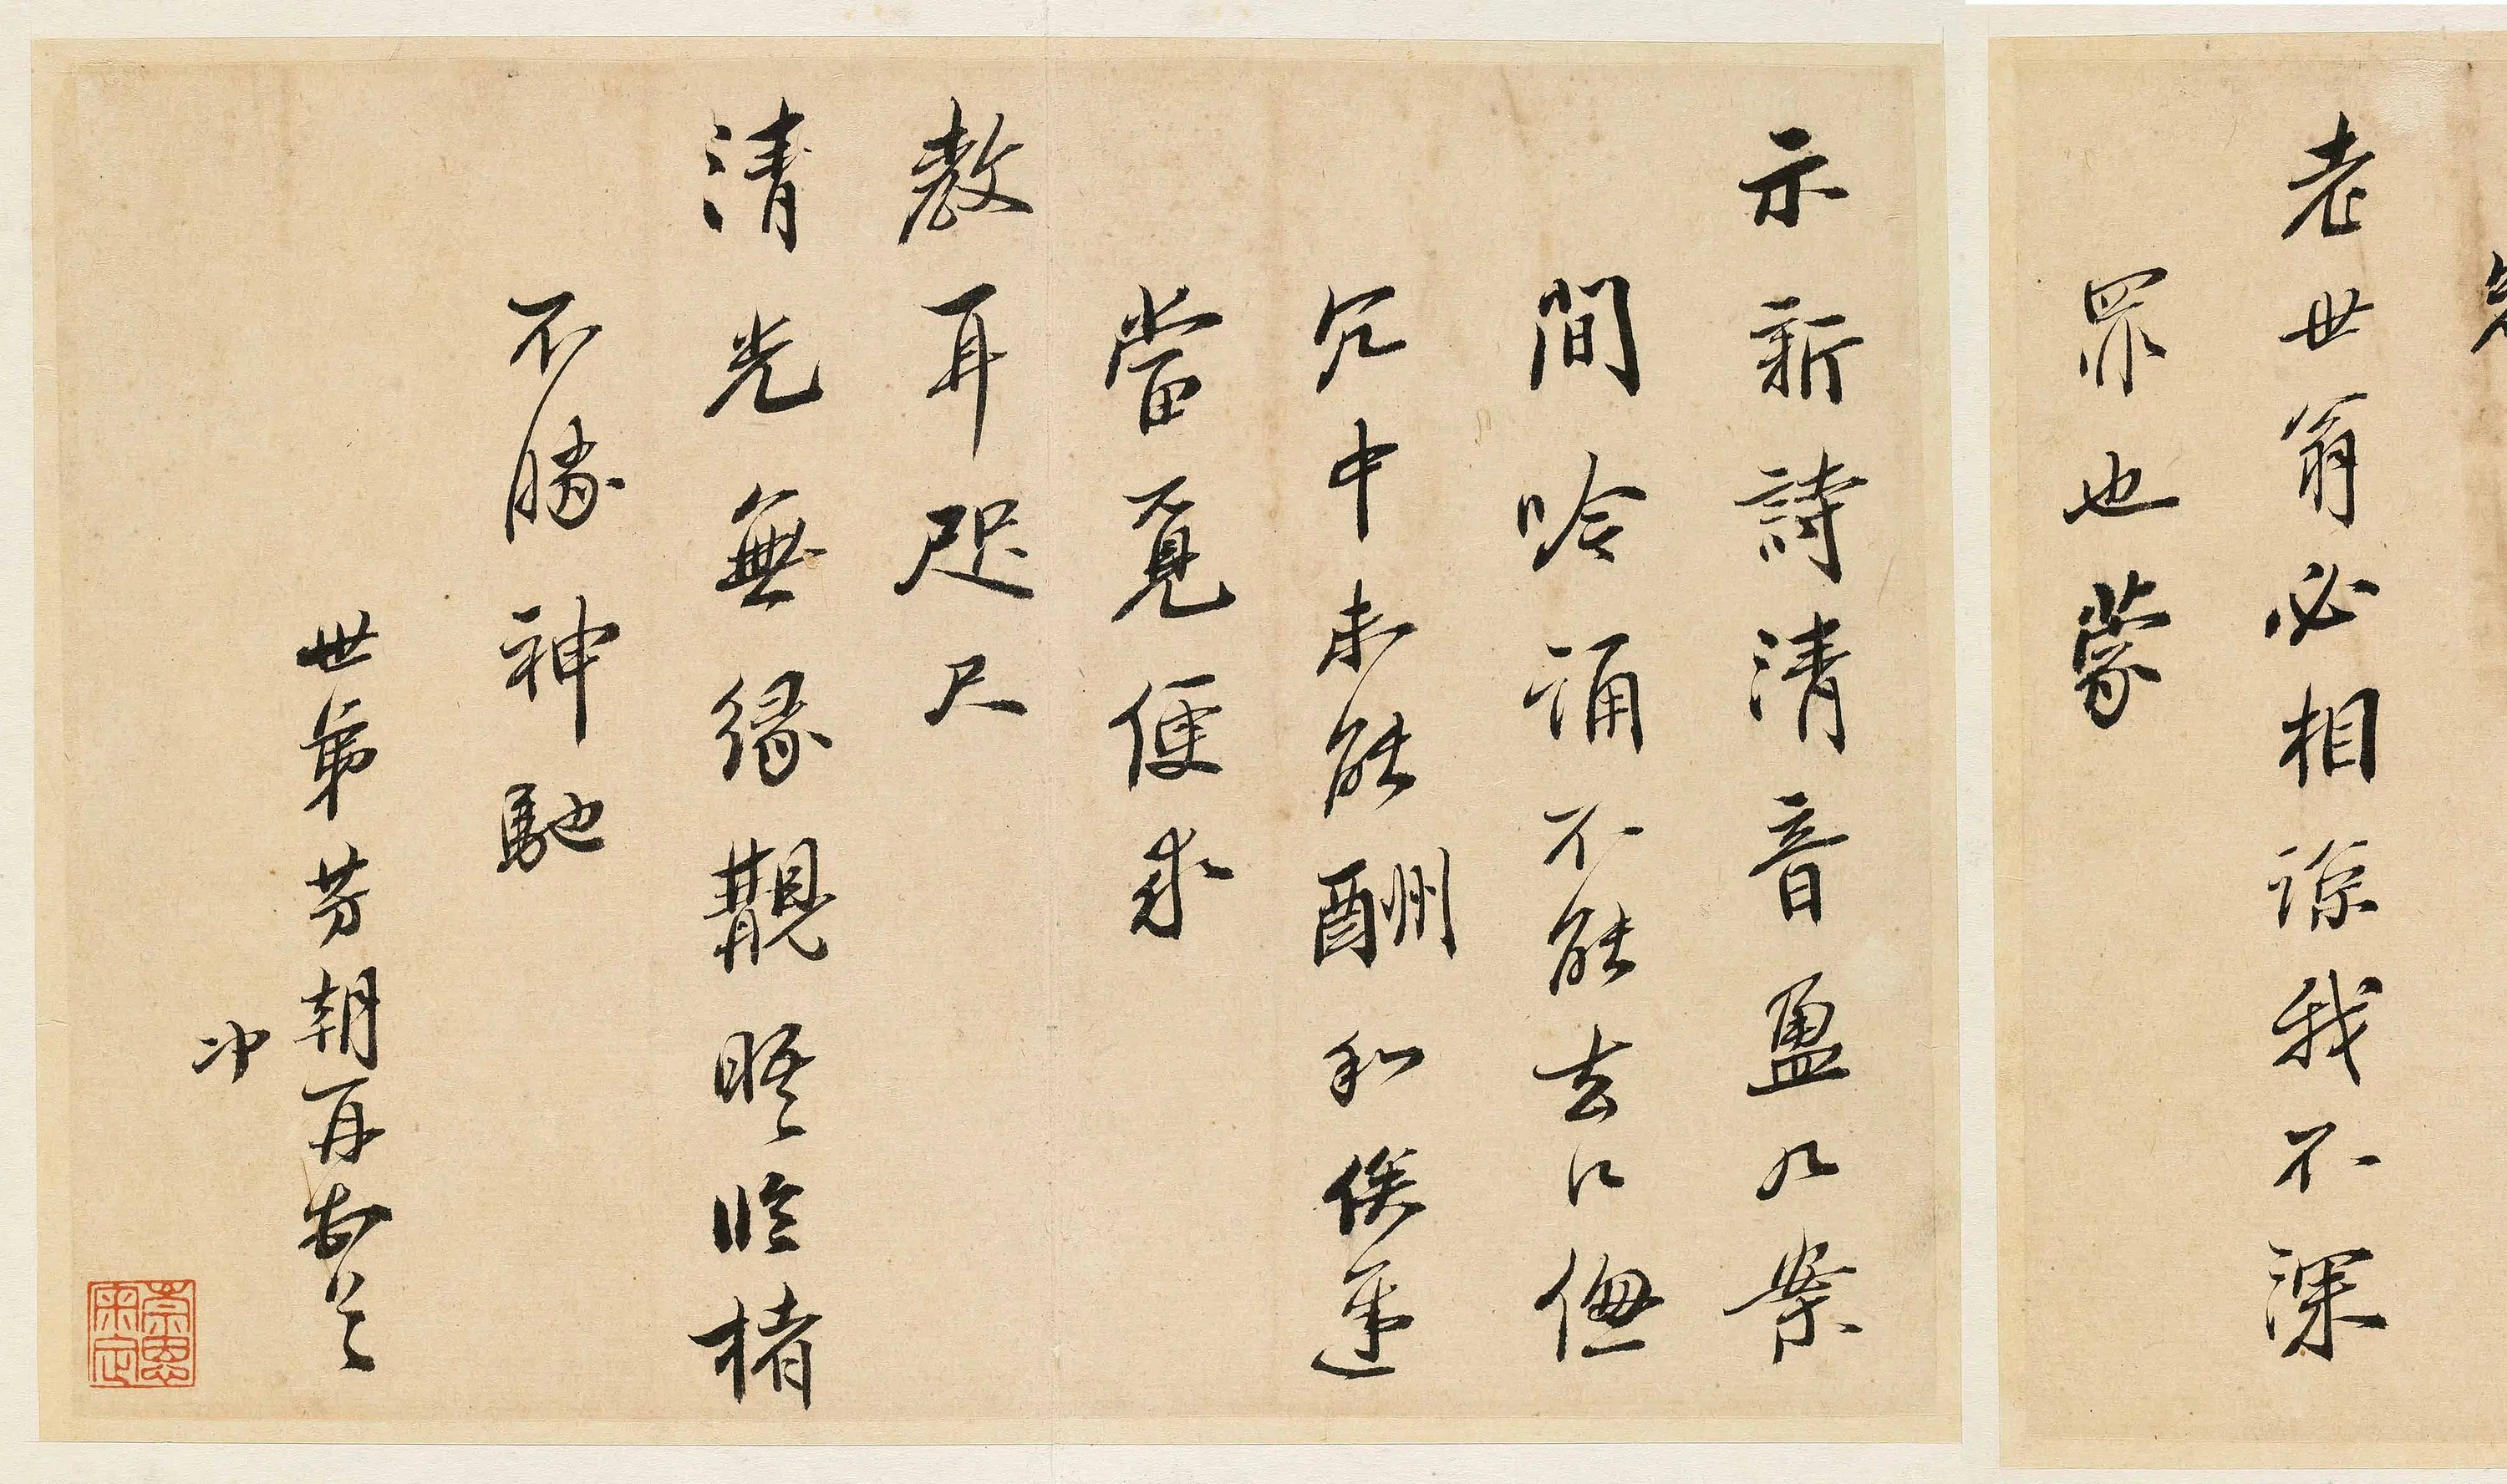 老世翁必相諒我不深
罪也蒙
示新詩清音盈几案
間吟誦不能去口儓
冗中未能酬和俟遲
當覓便求
教耳咫尺
清光無緣覯晤臨楮
不勝神馳
世弟芳朝再頓首
冲